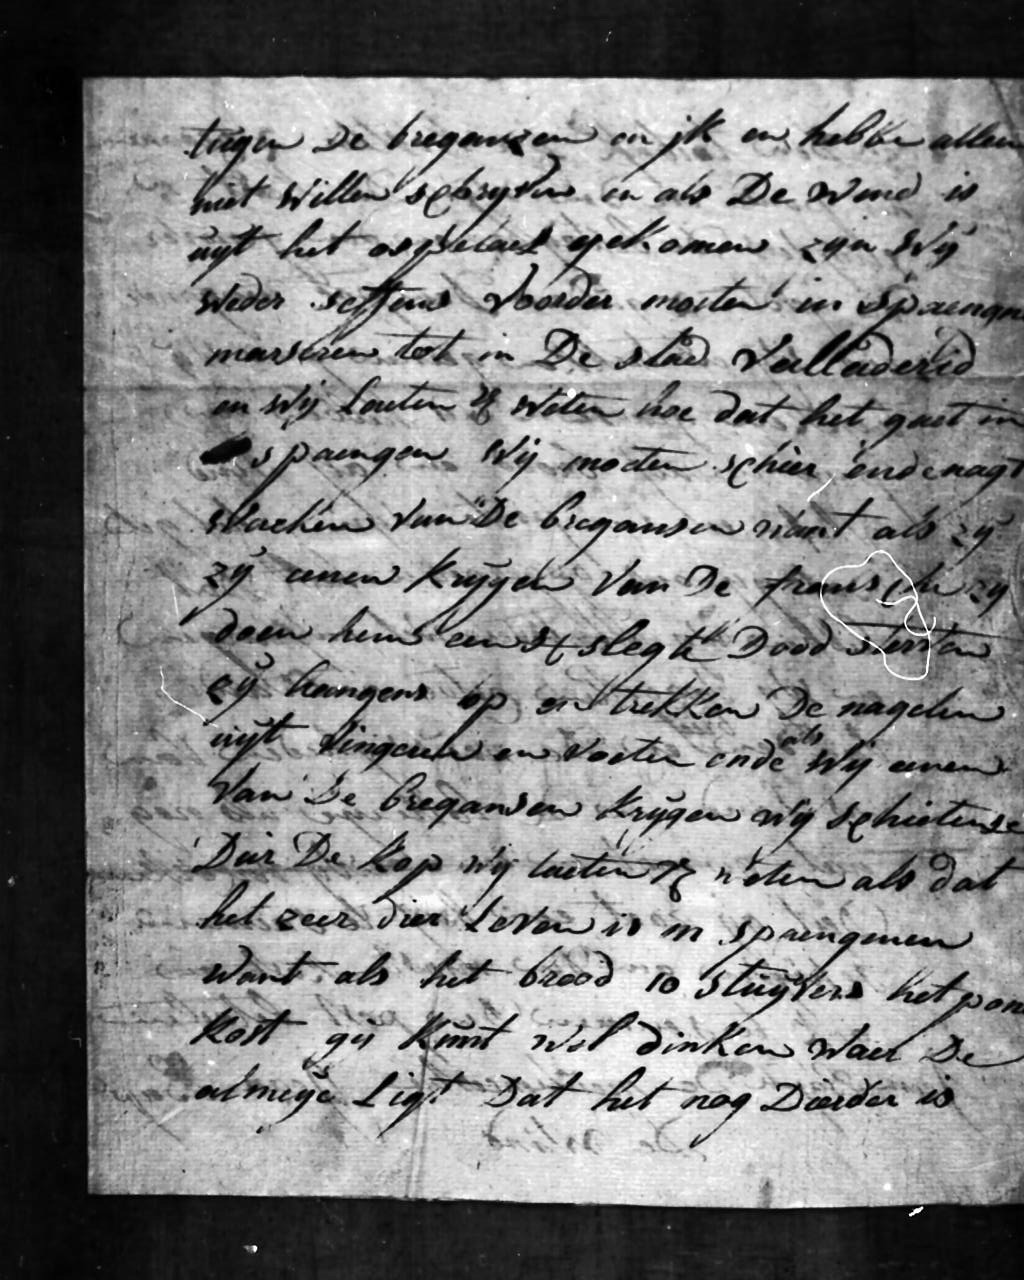 tugen De breganzen en jk en hebbe allen
niet willen schryven en als De wind is
uyt het ospetael gekomen zyn wij
weder seffens Voorder moeten in spaengn
marseren tot in De stad Valladerid
en wij laeten UE weten hoe dat het gaet in
spaengen wij moeten schier ider nagt
Wachten van De bregansen want als zij
zij eenen krijgen Van De fransche zy
doen hem een slegte Dood sterven
zij hangens op en trekken De nagelen
uijt vingeren en voeten ende als wij eenen
Van De bregansen krygen wij schietense
Dur De kop wij laeten UE weten als dat
het zeer dier Leven is in spaengenen
want als het brood 10 stuyvers het pon
kost gij kunt wel dinken waer De
almeye Ligt Dat het nog Dierder is